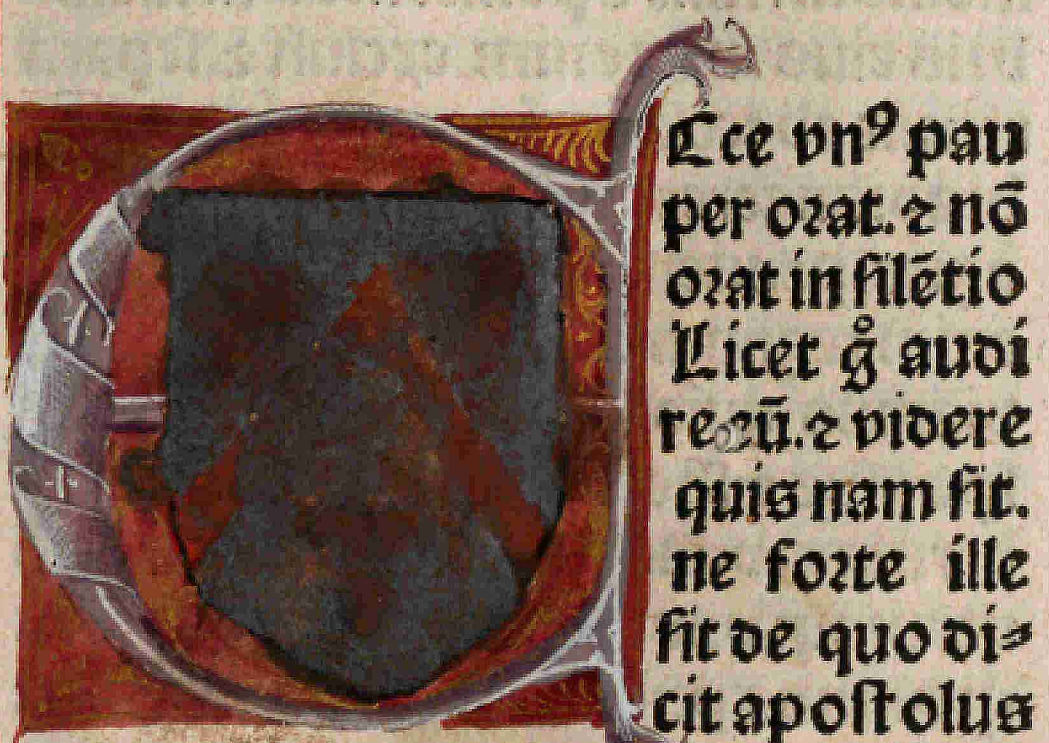 Ecce vnꝰ pau
per oꝛat. ⁊ nō
oꝛat in ſilētio
Licet gͦ audi
re eū. ⁊ videre
quis nam ſit.
ne foꝛte ille
ſit de quo di⸗
cit apoſtolus